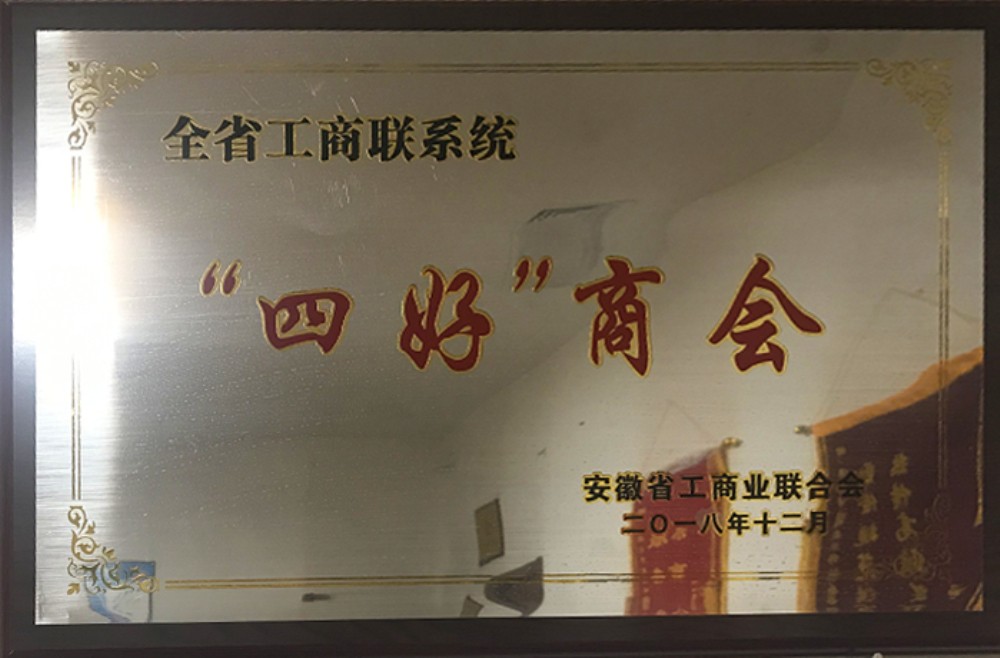 全省工商联系统
“四好”商会
安徽省工商业联合会
二〇一八年十二月